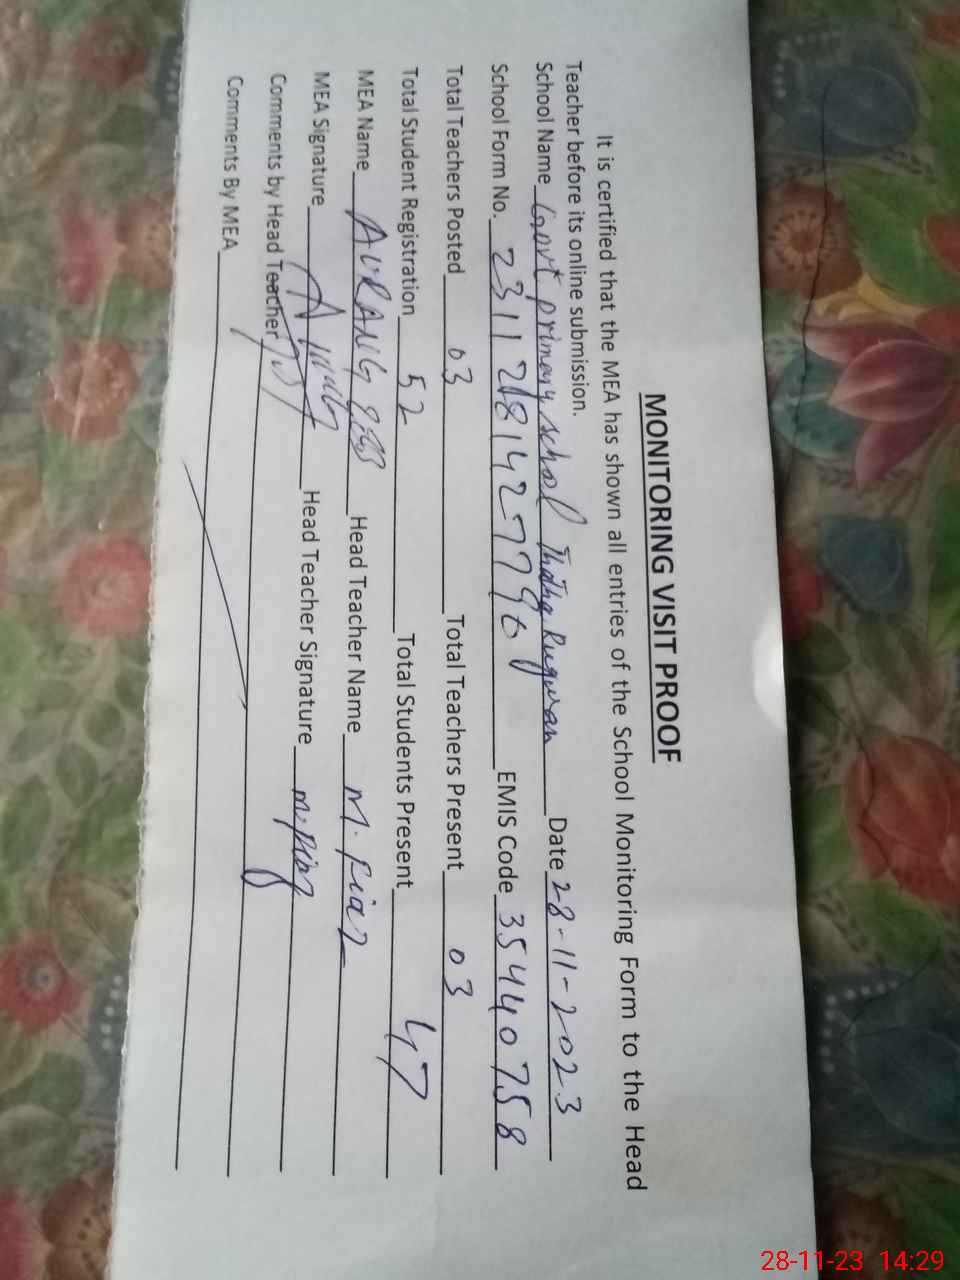 MONITORING VISIT PROOF
It is certified that the MEA has shown all entries of the School Monitoring Form to the Head
Teacher before its online submission.
School Name Govt primary school Date 28-11-2023
School Form No. EMIS Code 35440758
Total Teachers Posted 03 Total Teachers Present 03
Total Student Registration 52 Total Students Present 47
MEA Name AURANG Head Teacher Name M. Riaz
MEA Signature Head Teacher Signature M. Riaz
Comments by Head Teacher
Comments By MEA
28-11-23 14:29